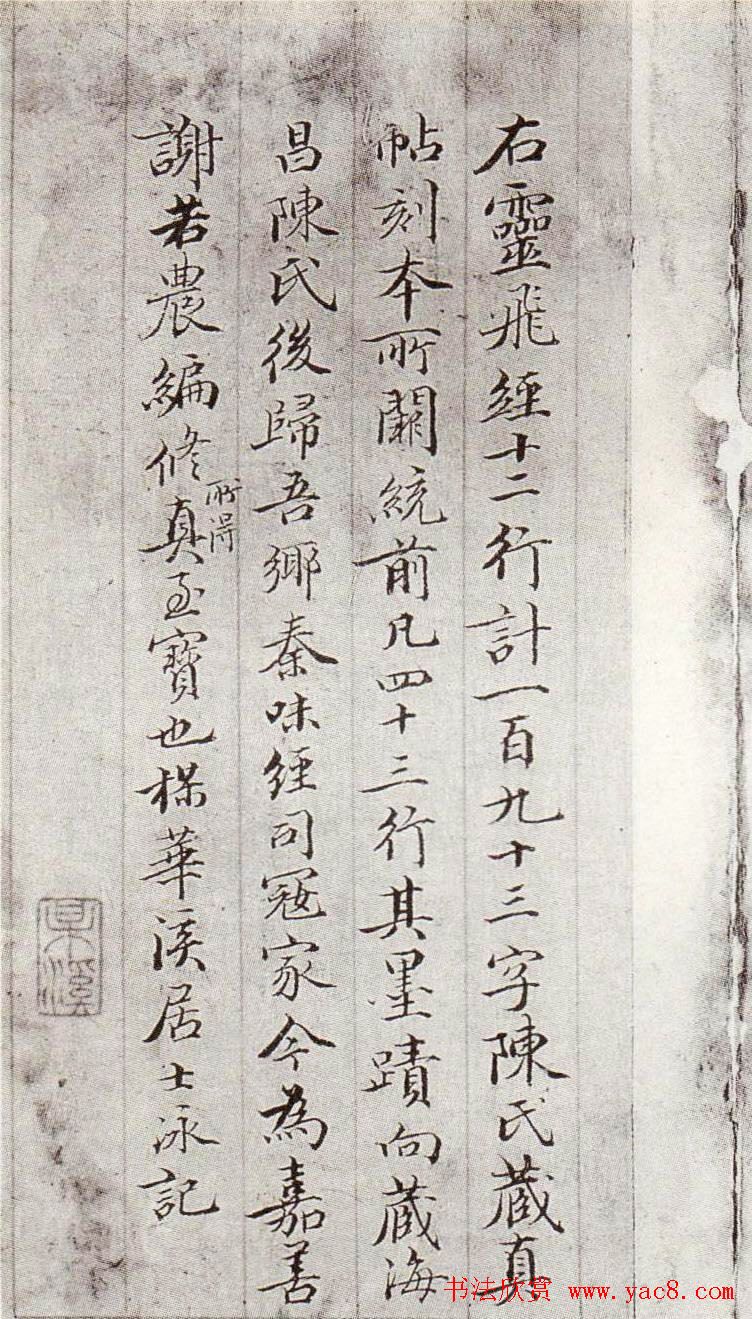 右靈飛經十二行計一百九十三字陳氏蔵真
帖刻本所闕統前凡四十三行其墨蹟向蔵海
昌陳氏後歸吾鄉秦味經司寇家今為嘉善
謝若農編修所得真至寶也楳華溪居士泳記
某溪
书法欣赏 www.yac8.com